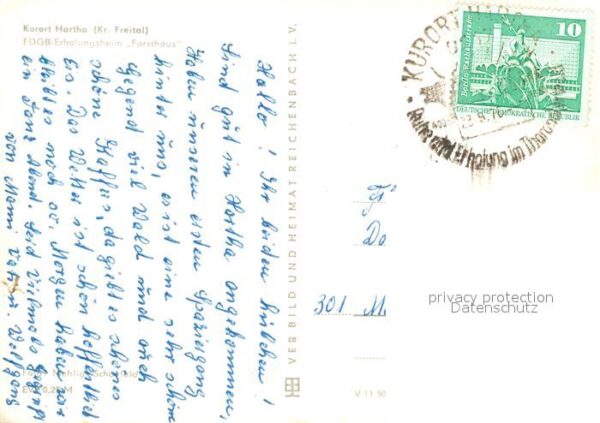 Kurort Hartha (Kr. Freital)
FDGB-Erholungsheim „Forsthaus"
Hallo! Ihr beiden Hübchen!
Sind gut in Hartha angekommen,
Haben unseren ersten Spaziergang
hinter uns, es ist eine sehr schöne
Gegend viel Wald und auch
schöne Kaffees, da giebt es schönes
Eis. Das Wetter ist schön hoffentlich
bleibt es noch so. Morgen haben wir
ein Tanz Abend. Seid vielmals gegrüßt
von Mami Vati u. Wolfgang
Foto: Mehlig, Scharfeld
EVP 0,20 M
VEB BILD UND HEIMAT REICHENBACH I. V.
V 11 50
KURORT HAR
Ruhe und Erholung im Thar
10
Berlin, Rathausstraße
DEUTSCHE DEMOKRATISCHE REPUBLIK
Do
301 M
privacy protection
Datenschutz